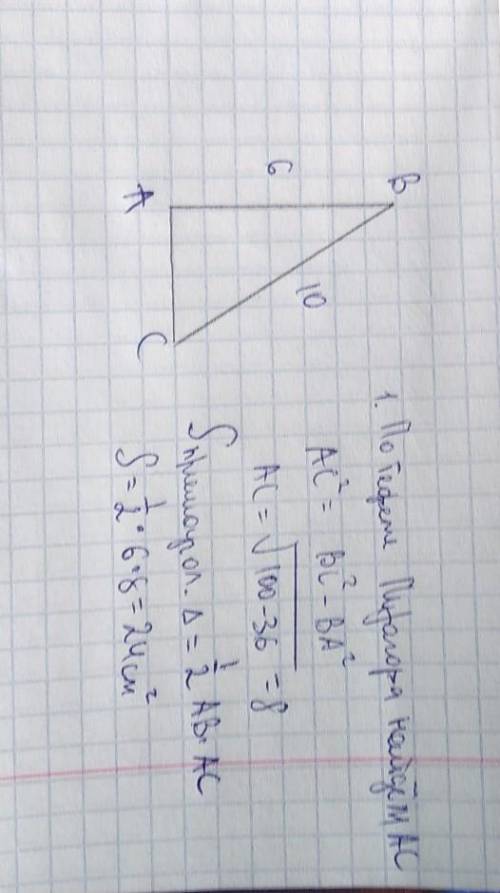 B
6
10
A
C
1. По теореме Пифагора найдём AC
AC² = BC² - BA²
AC = √100-36 = 8
S прямоугол. Δ = 1/2 AB · AC
S = 1/2 · 6 · 8 = 24 см²